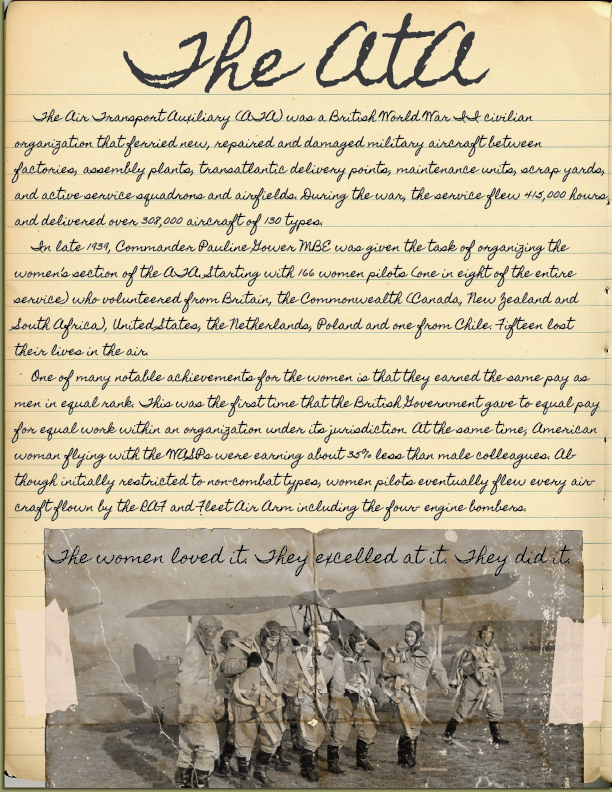 The ATA
The Air Transport Auxiliary (ATA) was a British World War II civilian
organization that ferried new, repaired and damaged military aircraft between
factories, assembly plants, transatlantic delivery points, maintenance units, scrap yards,
and active service squadrons and airfields. During the war, the service flew 415,000 hours,
and delivered over 308,000 aircraft of 130 types.
In late 1939, Commander Pauline Gower MBE was given the task of organizing the
women's section of the ATA. Starting with 166 women pilots (one in eight of the entire
service) who volunteered from Britain, the Commonwealth (Canada, New Zealand and
South Africa), United States, the Netherlands, Poland and one from Chile. Fifteen lost
their lives in the air.
One of many notable achievements for the women is that they earned the same pay as
men in equal rank. This was the first time that the British Government gave to equal pay
for equal work within an organization under its jurisdiction. At the same time, American
woman flying with the WASPs were earning about 35% less than male colleagues. Al-
though initially restricted to non-combat types, women pilots eventually flew every air-
craft flown by the RAF and Fleet Air Arm including the four- engine bombers.
The women loved it. They excelled at it. They did it.